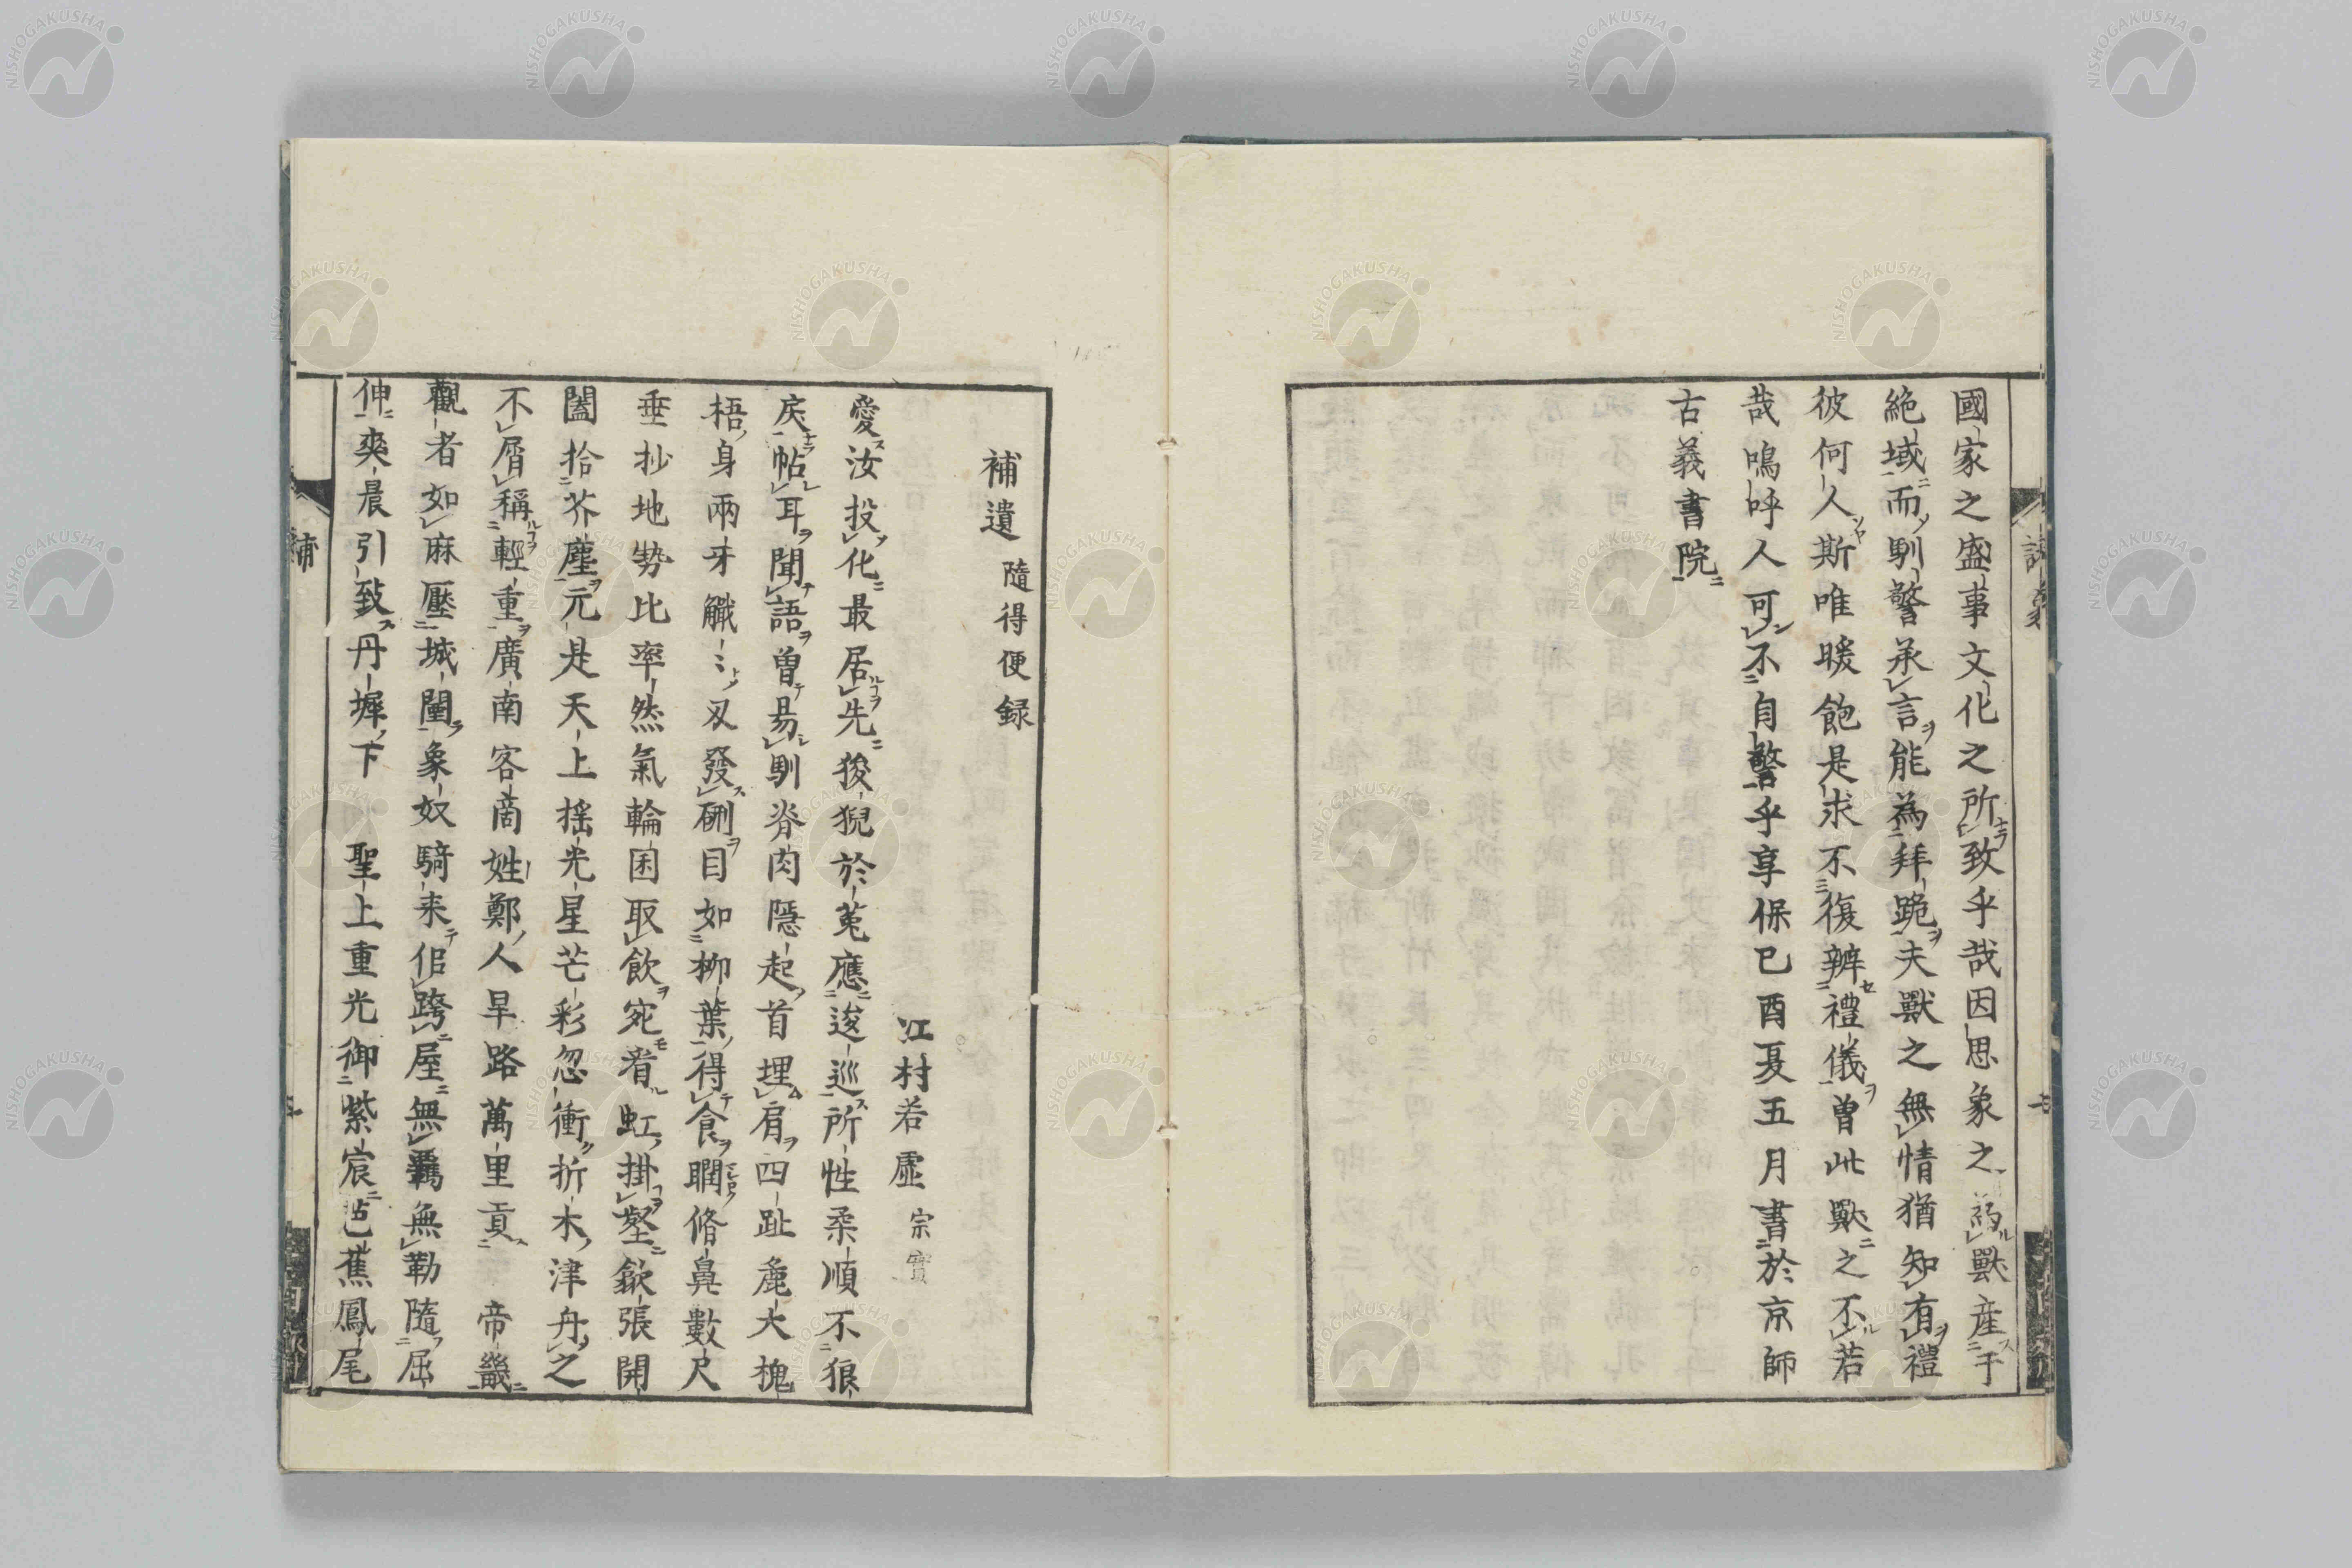 國家之盛事文化之所致乎哉因思象之為獸産于
絶域而馴警承言能為拜跪夫獸之無情猶知有禮
彼何人斯唯暖飽是求不復辨禮儀曽此獸之不若
哉嗚呼人可不自警乎享保已酉夏五月書於京師
古義書院
補遺 隨得便録
江村若虛 宗實
愛汝投化最居先狻猊於菟應逡巡所性柔順不狼
戾帖耳聞語曽易馴脊肉隱起首埋肩四趾麁大槐
梧身兩牙觿觿双發硎目如柳葉得食瞤脩鼻數尺
垂抄地勢比率然氣輪囷取飲宛看虹掛壑歙張開
闔拾芥塵元是天上揺光星芒彩忽衝折木津舟之
不屑稱輕重廣南客商姓鄭人旱路萬里貢帝畿
觀者如麻壓城闉象奴騎来佀跨屋無羈無勒隨屈
伸爽晨引致丹墀下聖上重光御紫宸芭蕉鳳尾
補
NISHOGAKUSHA